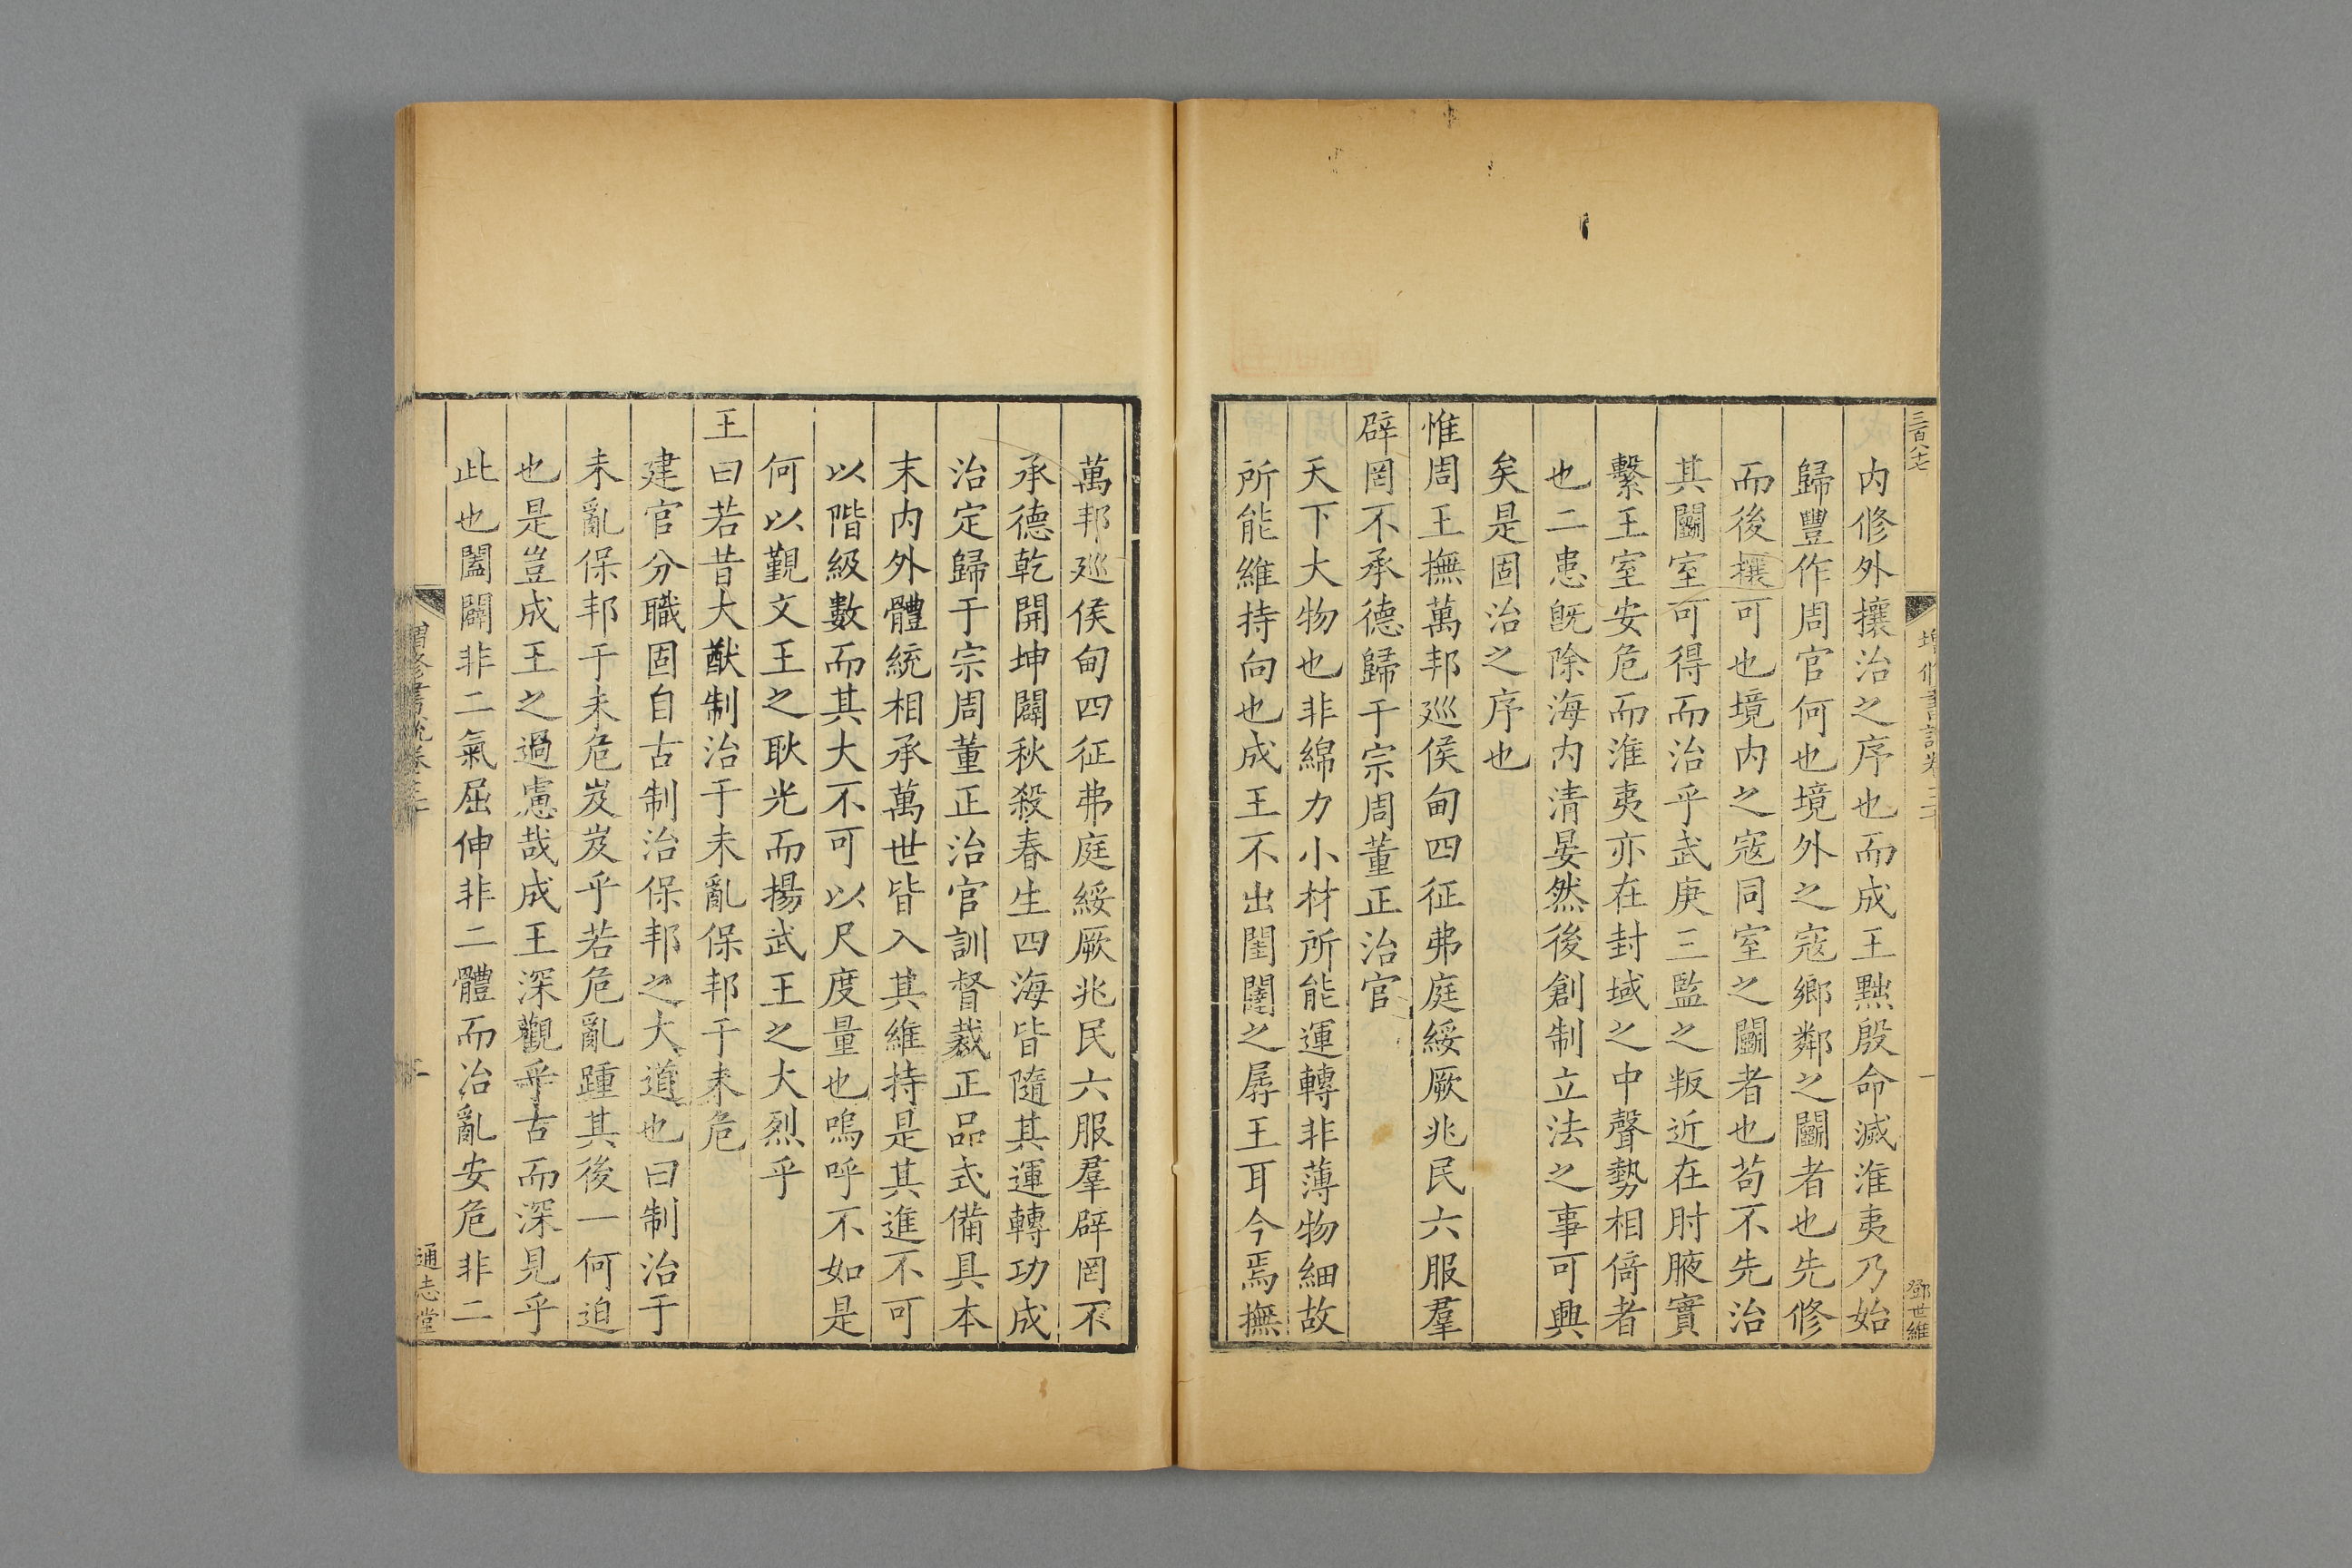 三百八十七
增修書說卷三十
一
鄧世維
內修外攘治之序也而成王黜殷命滅淮夷乃始
歸豐作周官何也境外之寇鄉鄰之鬭者也先修
而後攘可也境內之寇同室之鬭者也苟不先治
其鬭室可得而治乎武庚三監之叛近在肘腋實
繫王室安危而淮夷亦在封域之中聲勢相倚者
也二患旣除海內清晏然後創制立法之事可興
矣是固治之序也
惟周王撫萬邦巡侯甸四征弗庭綏厥兆民六服羣
辟罔不承德歸于宗周董正治官
天下大物也非綿力小材所能運轉非薄物細故
所能維持向也成王不出閨闥之孱王耳今焉撫
萬邦巡侯甸四征弗庭綏厥兆民六服羣辟罔不
承德乾開坤闢秋殺春生四海皆隨其運轉功成
治定歸于宗周董正治官訓督裁正品式備具本
末內外體統相承萬世皆入其維持是其進不可
以階級數而其大不可以尺度量也嗚呼不如是
何以覲文王之耿光而揚武王之大烈乎
王曰若昔大猷制治于未亂保邦于未危
建官分職固自古制治保邦之大道也曰制治于
未亂保邦于未危岌岌乎若危亂踵其後一何迫
也是豈成王之過慮哉成王深觀乎古而深見乎
此也闔闢非二氣屈伸非二體而治亂安危非二
增修書說卷三十
通志堂